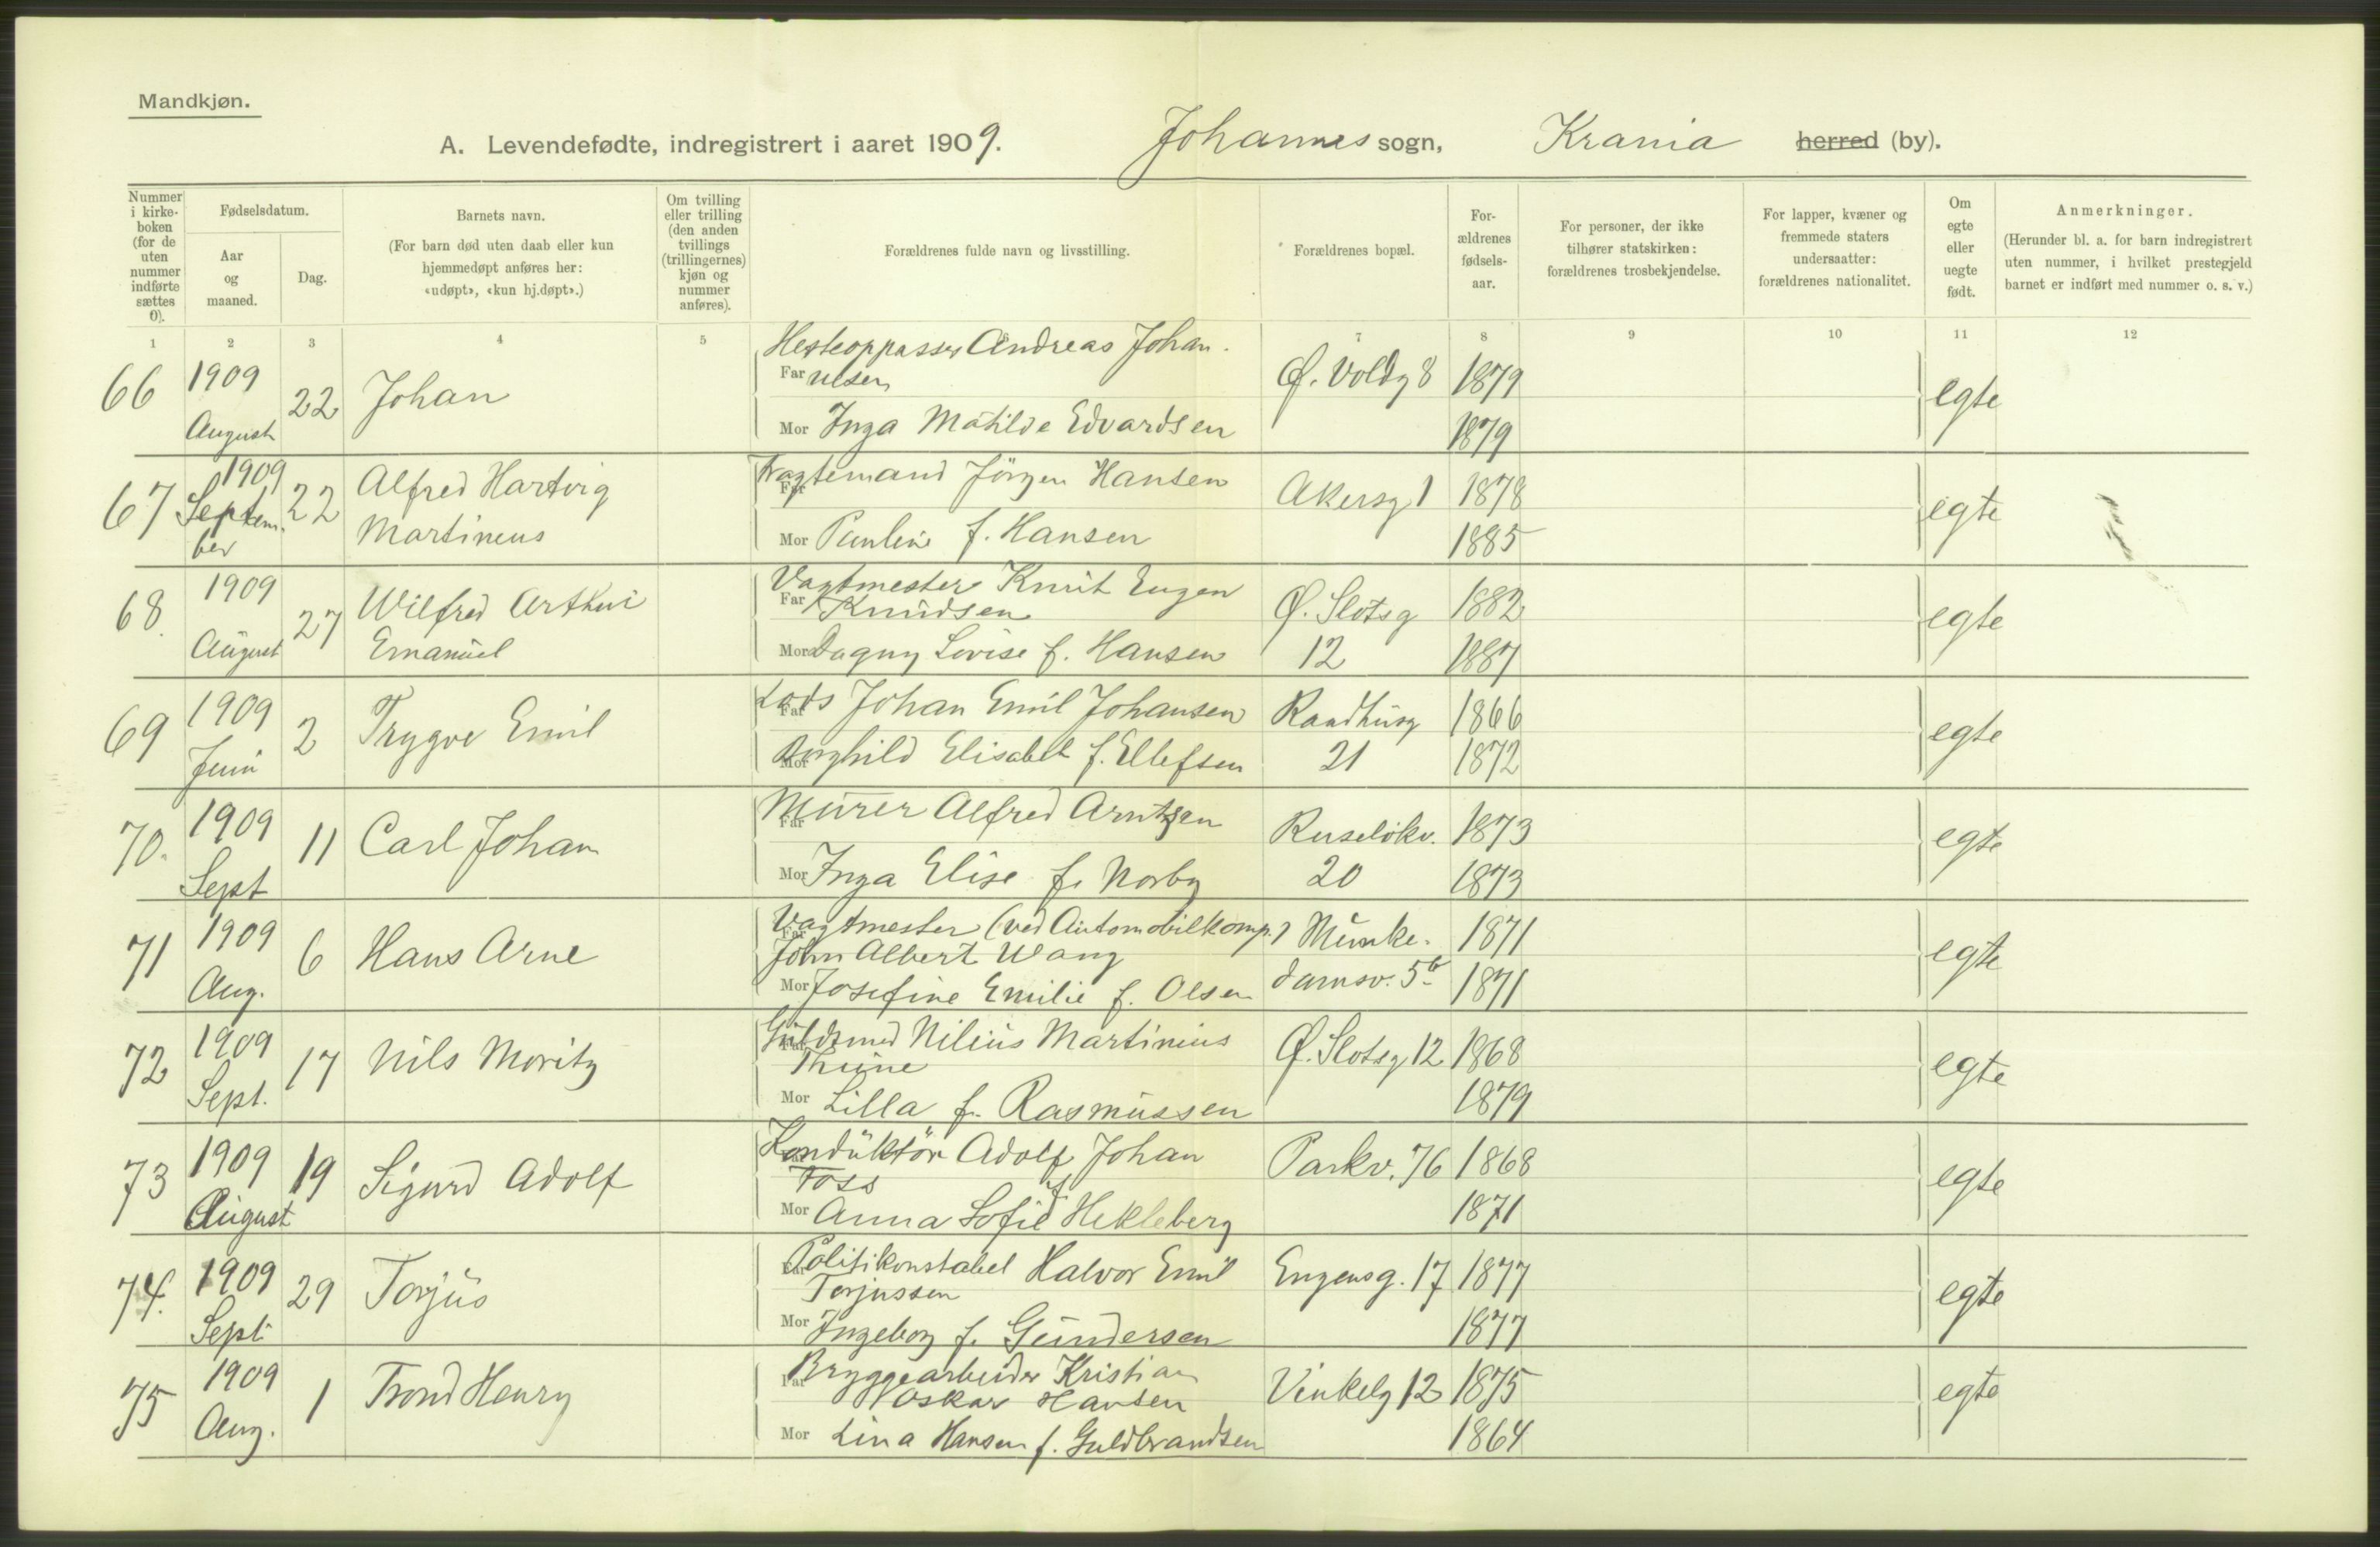 Mandkjøn.
A. Levendefødte, indregistrert i aaret 1909. Johannes sogn, Krania herred (by).
Nummer i kirke- boken (for de uten nummer indførte sættes 0).
Fødselsdatum.
Aar og maaned.
Dag.
Barnets navn.
(For barn død uten daab eller kun hjemmedøpt anføres her: «udøpt», «kun hj.døpt».)
Om tvilling eller trilling (den anden tvillings (trillingernes) kjøn og nummer anføres).
Forældrenes fulde navn og livsstilling.
Forældrenes bopæl.
For- ældrenes fødsels- aar.
For personer, der ikke tilhører statskirken: forældrenes trosbekjendelse.
For lapper, kvæner og fremmede staters undersaatter: forældrenes nationalitet.
Om egte eller uegte født.
Anmerkninger.
(Herunder bl. a. for barn indregistrert uten nummer, i hvilket prestegjeld barnet er indført med nummer o. s. v.)
1 2 3 4 5 7 8 9 10 11 12
66 1909 August 22 Johan
Hesteoppasser Andreas Johan-
Far nesen Ø. Voldg 8 1879 egte
Mor Inga Matilde Edvardsen 1879
67 1909 Septem- ber 22 Alfred Hartvig Martineus
Far Vagtemand Jörgen Hansen Akersg 1 1878 egte
Mor Pauline f. Hansen 1885
68. 1909 August 27 Wilfred Arthur Emanuel
Vagtmester Knut Eugen
Far Knudsen Ø. Slotsg 1882 egte
Mor Dagny Lovise f. Hansen 12 1887
69 1909 Juni 2 Trygve Emil
Far Lods Johan Emil Johansen Raadhusg 1866 egte
Mor Borghild Elisabet f. Ellefsen 21 1872
70. 1909 Sept 11 Carl Johan
Far Murer Alfred Arntzen Ruselökv. 1873 egte
Mor Inga Elise f. Norby 20 1873
71 1909 Aug. 6 Hans Arne
Far Vagtmester (ved Automobilkomp.) Munke- 1871 egte
John Albert Wang
Mor Josefine Emilie f. Olsen damsv. 5b 1871
72 1909 Sept. 17 Nils Moritz
Far Guldsmed Nilius Martinius Ø. Slotsg 12 1868 egte
Thune
Mor Lilla f. Rasmussen 1879
73 1909 August 19 Sigurd Adolf
Far Konduktör Adolf Johan Parkv. 76 1868 egte
Foss
Mor Anna Sofie f. Hekleberg 1871
74. 1909 Sept. 29 Torjus
Far Politikonstabel Halvor Emil Eugensg. 17 1877 egte
Torjussen
Mor Ingeborg f. Gundersen 1877
75 1909 Aug. 1 Trond Henry
Far Bryggearbeider Kristian Vinkelg 12 1875 egte
Oskar Hansen
Mor Lina Hansen f. Guldbrandsen 1864